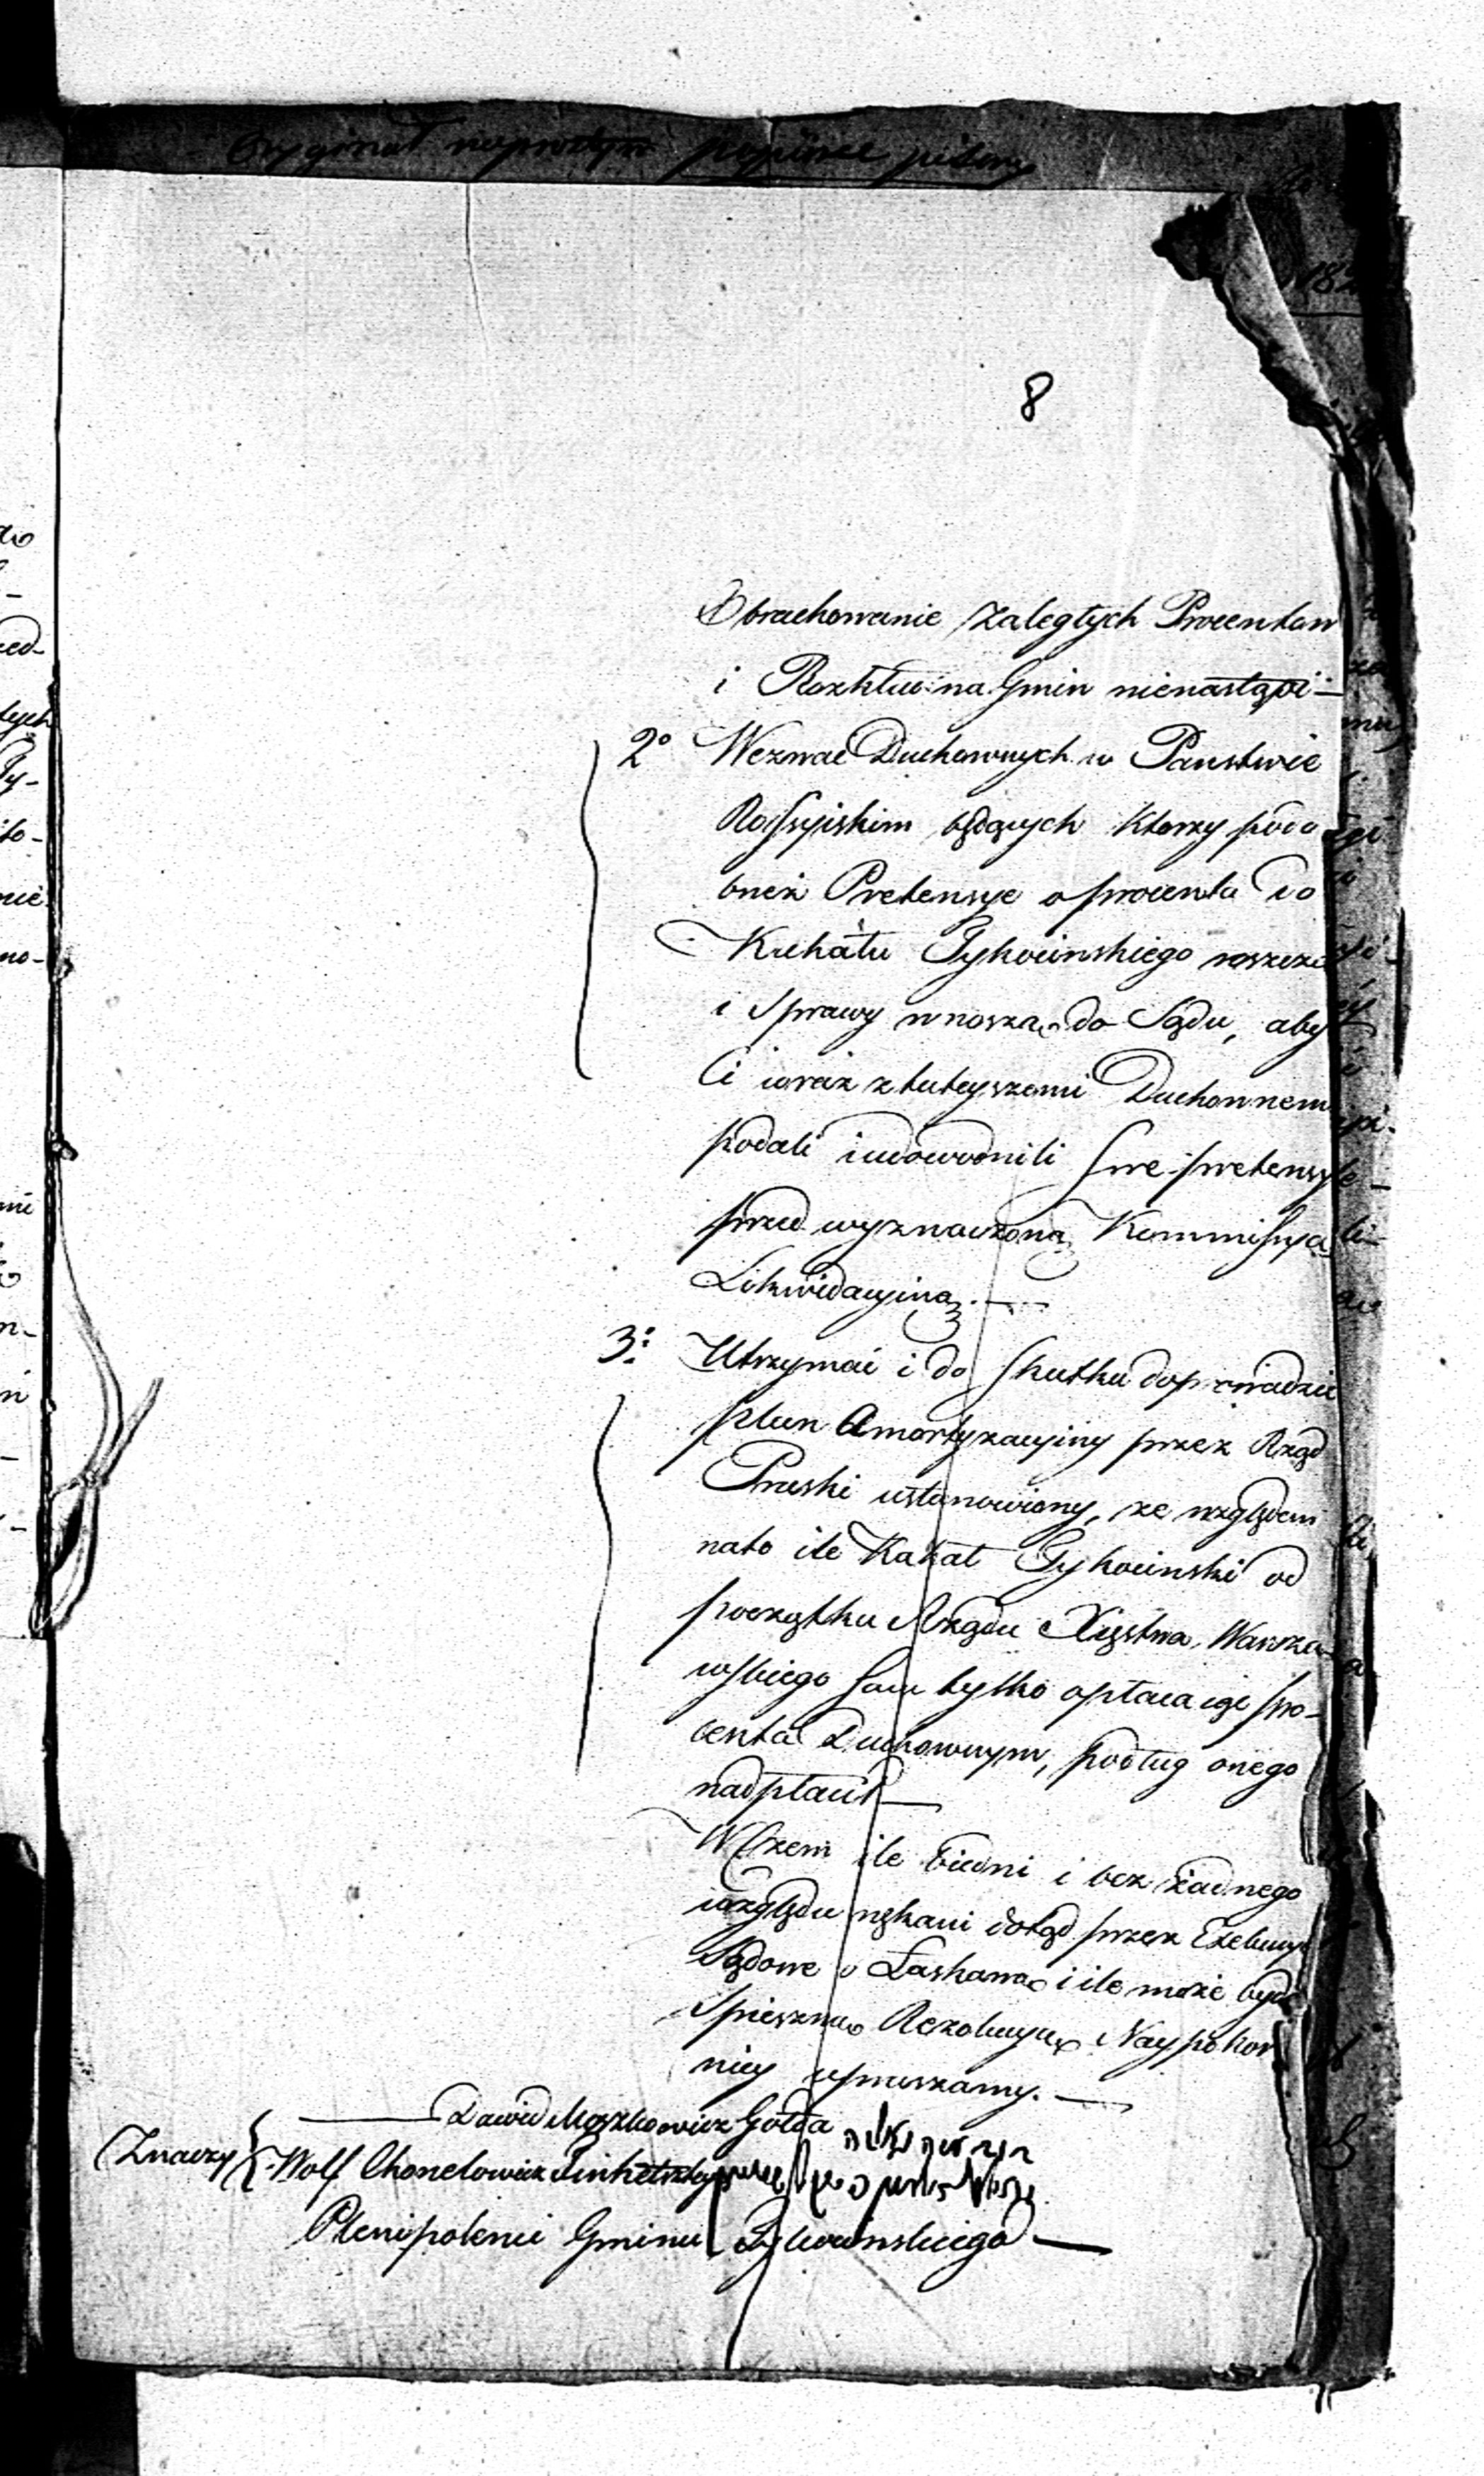 Oryginał papierze pisany
8
Obrachowanie zaległych Procentow
i Rozkład na Gmin nienastąpi –
2o Wezwać Duchownych w Panstwie
Rossyiskim będących ktorzy podo
bneż Pretensye o procenta do
Kachału Tykocinskiego roszcza
i Sprawy wnoszą do Sądu, aby
Ci wraz z tuteyszemi Duchownemi
podali i udowodnili swe pretensye
przed wyznaczoną Kommissyą
Likwidacyiną. —
3o Utrzymać i do skutku doprowadzić
plan Amortyzacyiny przez Rząd
Pruski ustanowiony, ze względem
nato ile Kahał Tykocinski od
początku Rządu Xięstwa Warsza
wskiego sam tylko opłacaiąc pro-
centa Duchownym, podług onego
nadpłacił —
W czem ile biedni i bez żadnego
względu nękani dotąd przez Exekucye
Sądowe o Łaskawą i ile może bydź
Spieszną Rezolucyą Naypokor
niey upraszamy. —
Dawid Moszkowicz Gołda
(Znaczy { Wolf Chonelowicz
Plenipotenci Gminu Tykocinskiego —